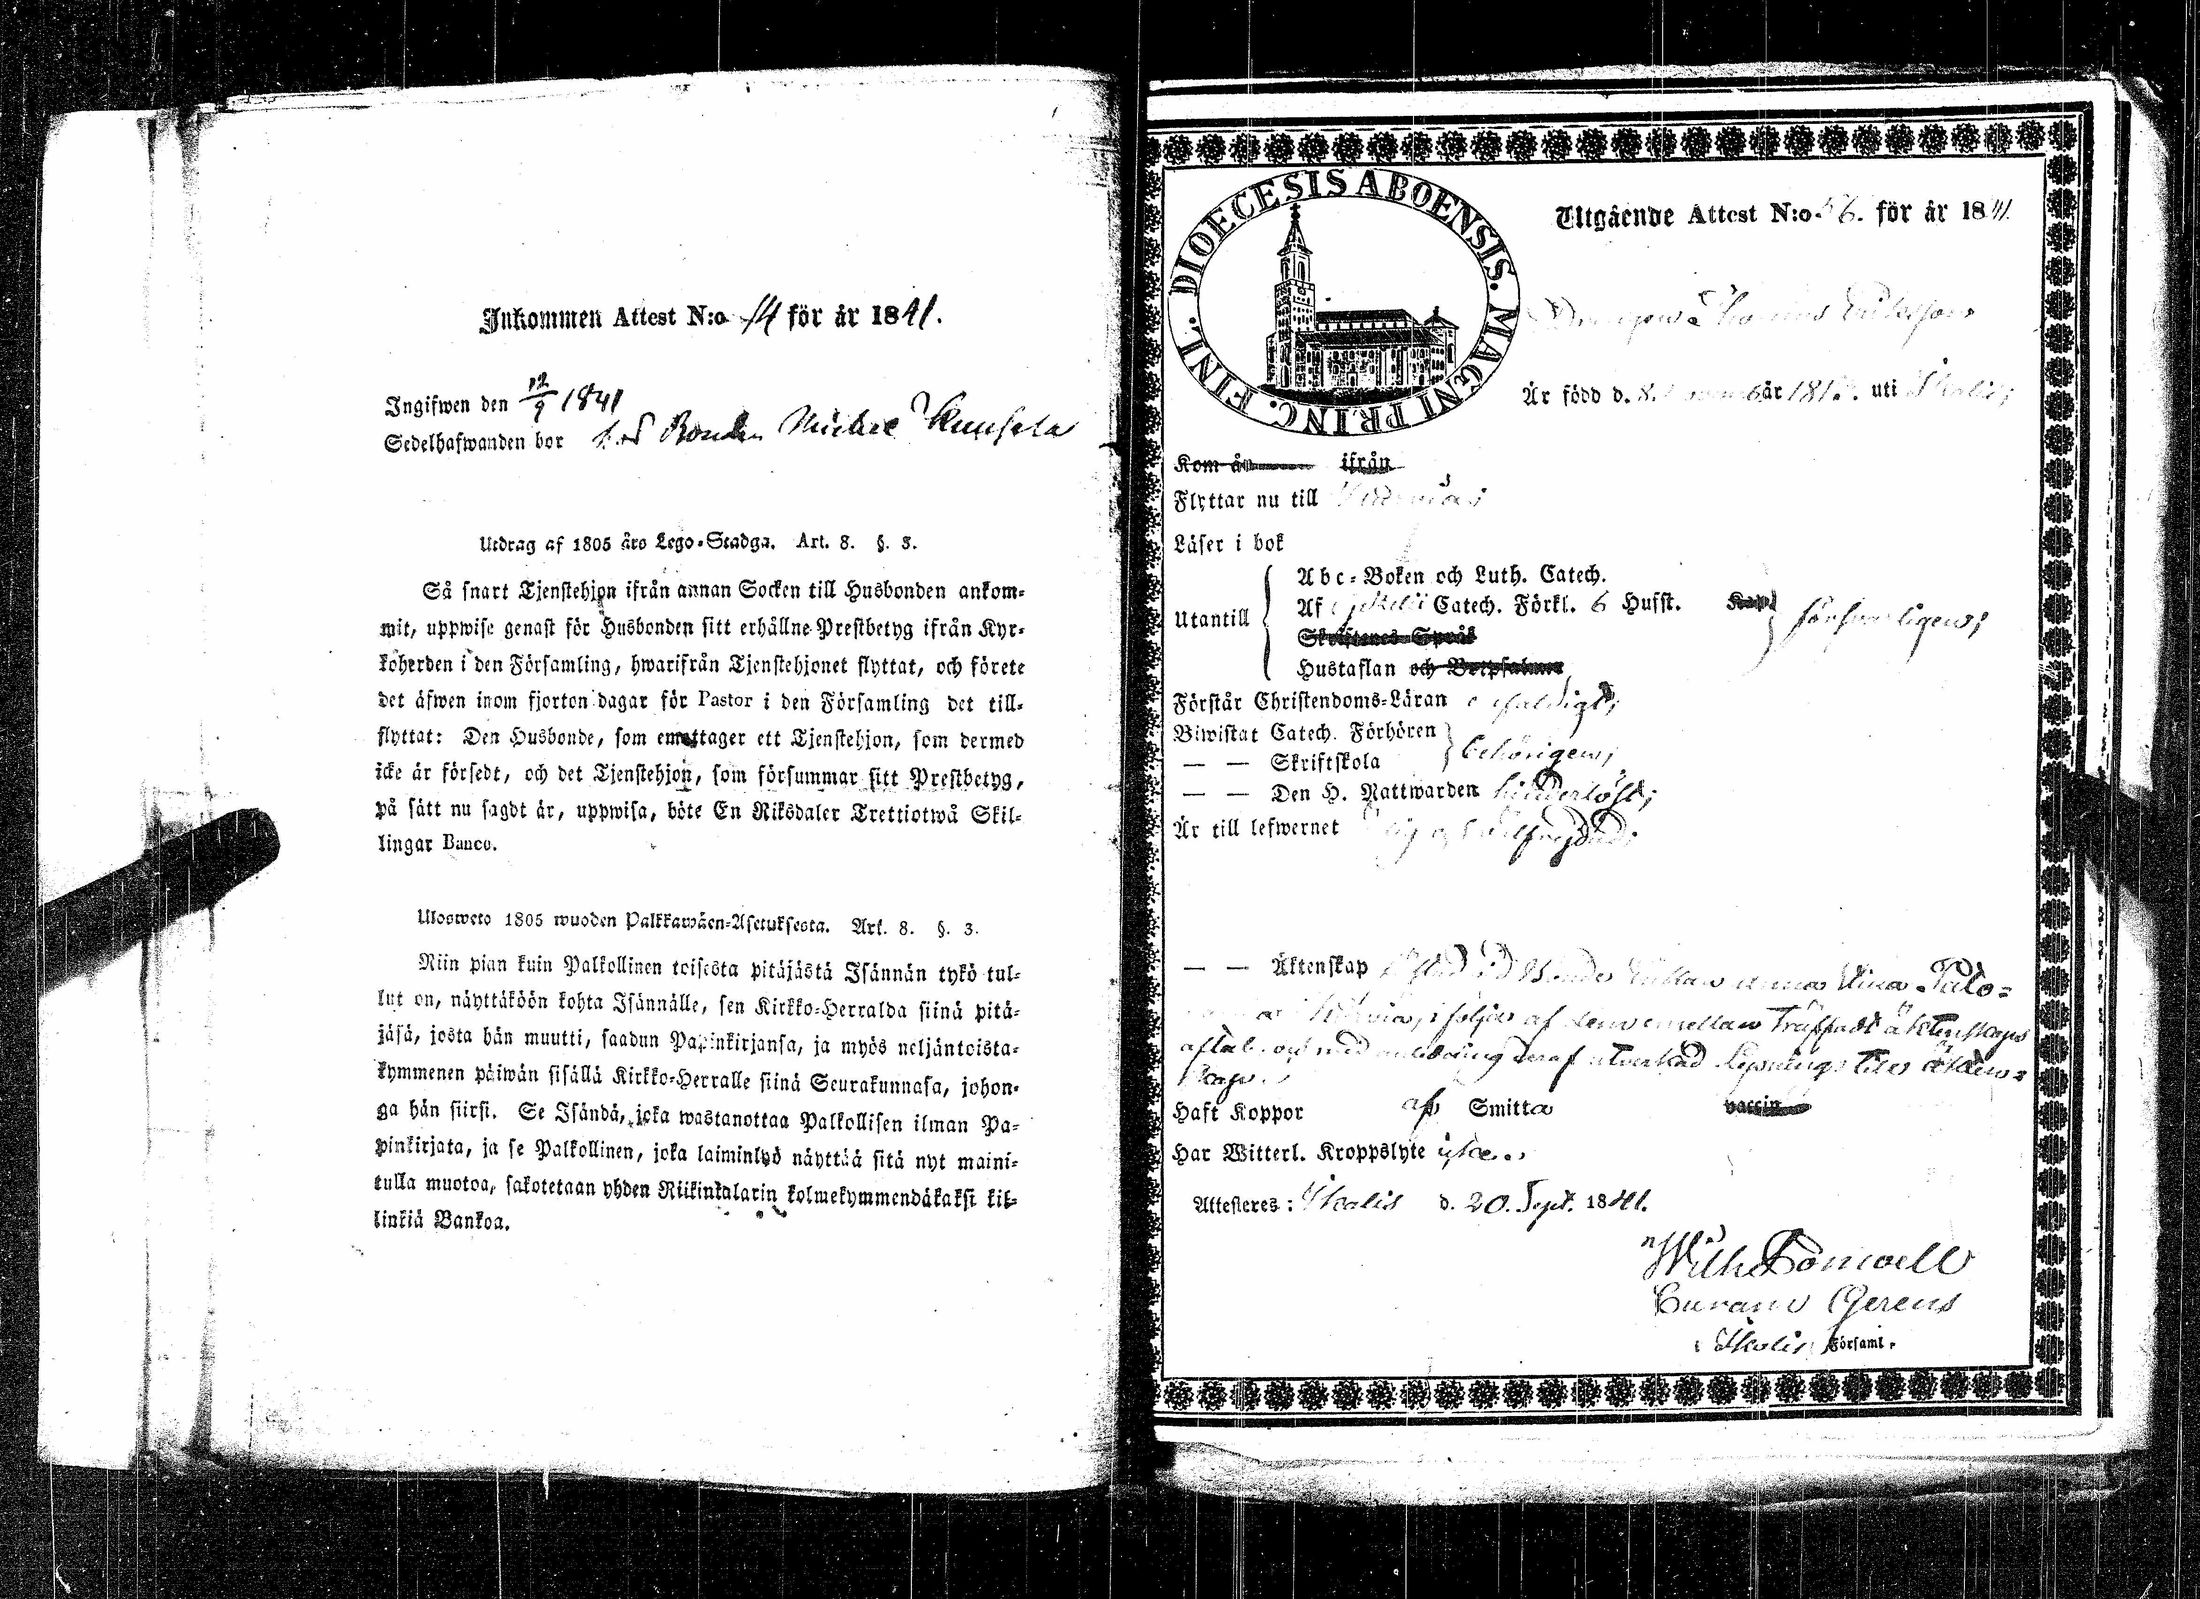 Inkommen Attest N:o 14 för år 1841.
Ingifwen den 12/9 1841
Sedelhafwanden bor hos Bonden Michel
Utdrag af 1805 års Lego-Stadga. Art. 8. §. 3.
Så snart Tjenstehjon ifrån annan Socken till Husbonden ankom-
mit, uppwise genast för Husbonden sitt erhållne Prestbetyg ifrån Kyr-
koherden i den Församling, hwarifrån Tjenstehjonet flyttat, och förete
det äfwen inom fjorton dagar för Pastor i den Församling det till-
flyttat: Den Husbonde, som emottager ett Tjenstehjon, som dermed
icke är försedt, och det Tjenstehjon, som försummar sitt Prestbetyg,
på sätt nu sagdt är, uppwisa, böte En Riksdaler Trettiotwå Skil-
lingar Banco.
Ulosweto 1805 wuoden Palkkawäen-Asetuksesta. Art. 8. §. 3.
Niin pian kuin Palkollinen toisesta pitäjästä Isännän tykö tul-
lut on, näyttäköön kohta Isännälle, sen Kirkko-Herralda siinä pitä-
jäsä, josta hän muutti, saadun Papinkirjansa, ja myös neljäntoista-
kymmenen päiwän sisällä Kirkko-Herralle siinä Seurakunnasa, johon-
ga hän siirsi. Se Isändä, joka wastanottaa Palkollisen ilman Pa-
pinkirjata, ja se Palkollinen, joka laiminlyö näyttää sitä nyt maini-
tulla muotoa, sakotetaan yhden Riikintalarin kolmekymmendäkaksi kil-
linkiä Bankoa.
DIOECESIS ABOENSIS. MAGNI PRINC. FINL.
Utgående Attest N:o 56. för år 1841.
Drängen Thomas
Är född d. 8. år 181 uti Ikalis;
Kom år ifrån
Flyttar nu till
Läser i bok
Utantill
Abc-Boken och Luth. Catech.
Af Catech. Förkl. 6 Husst. Kap.
Skriftenes Språk
Hustaflan och Botpsalmer
försvarligen;
Förstår Christendoms-Läran enfaldigt;
Biwistat Catech. Förhören
— — Skriftskola
behörigen;
— — Den H. Nattwarden hinderlöst;
Är till lefwernet ärlig och välfrejdad;
— — Äktenskap Anna Palo-
följer af dem emellan träffadt äktenskaps
aftal och med anledning deraf utverkad Lysning till äkten-
skap.
Haft Koppor af Smitta vaccin
Har Witterl. Kroppslyte icke.
Attesteres: Ikalis d. 20. Sept. 1841.
Wilh.
Curam Gerens
i Ikalis Församl.